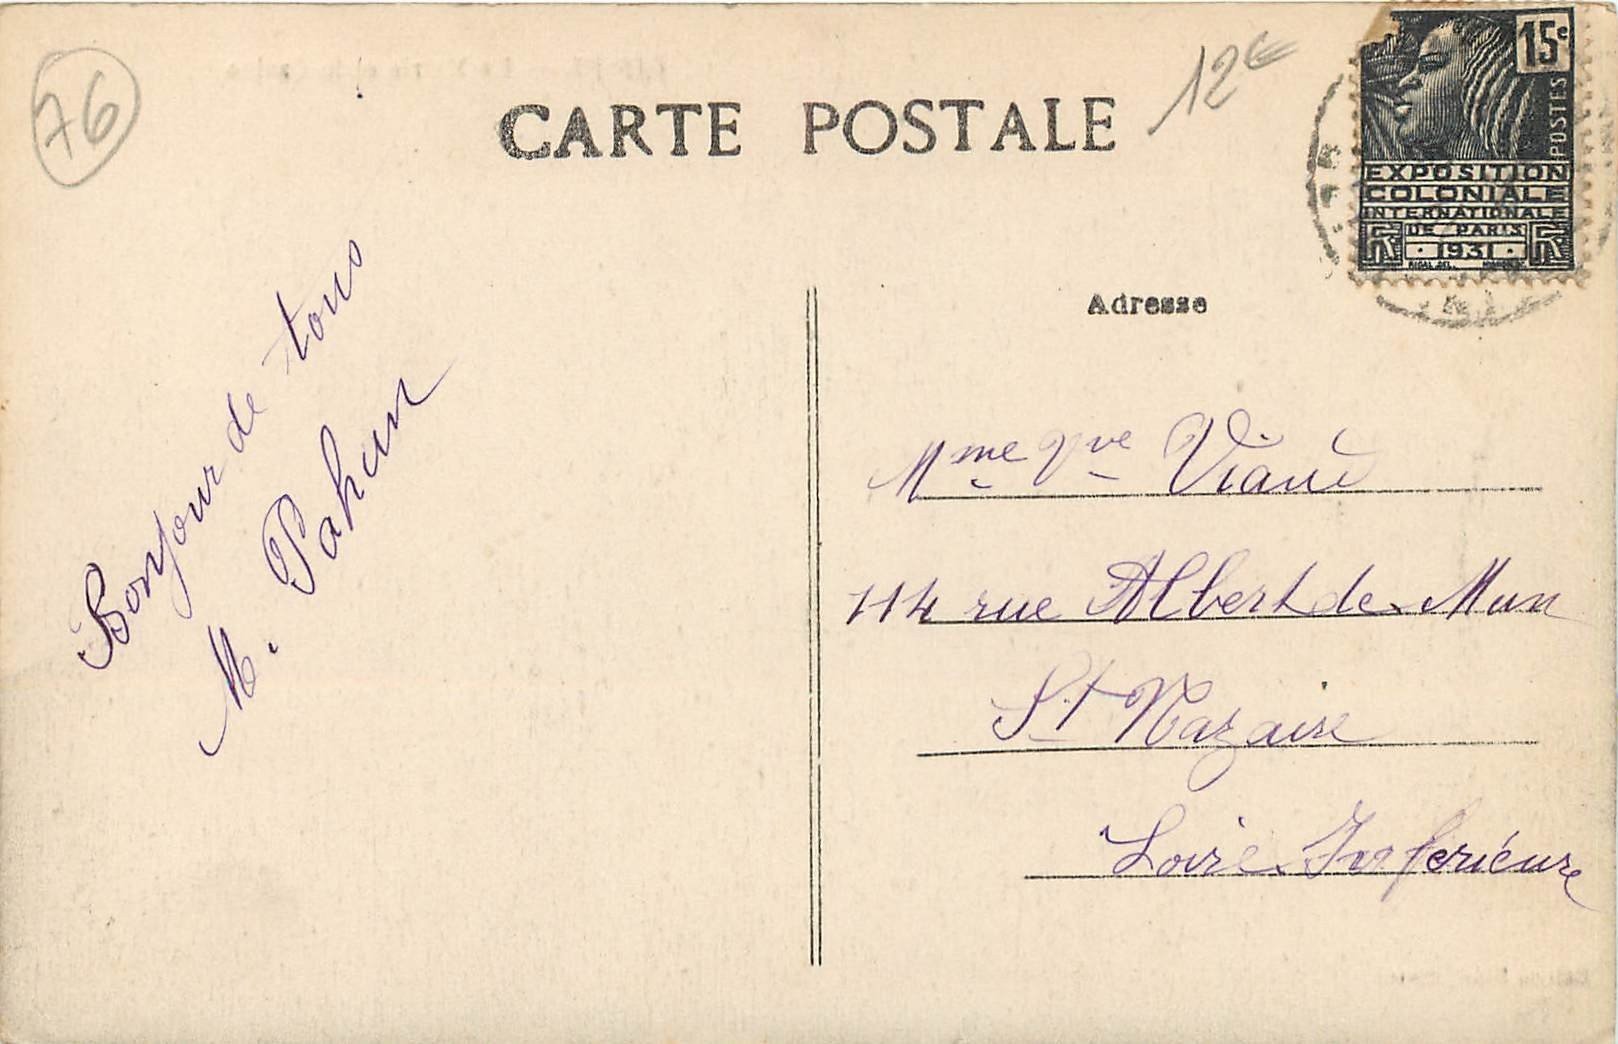 76
CARTE POSTALE
12€
15c
POSTES
EXPOSITION
COLONIALE
INTERNATIONALE
DE PARIS
1931
Adresse
Bonjour de tous
M. Pahun
Mme Vve Viaud
114 rue Albert de Mun
St Nazaire
Loire Inferieure